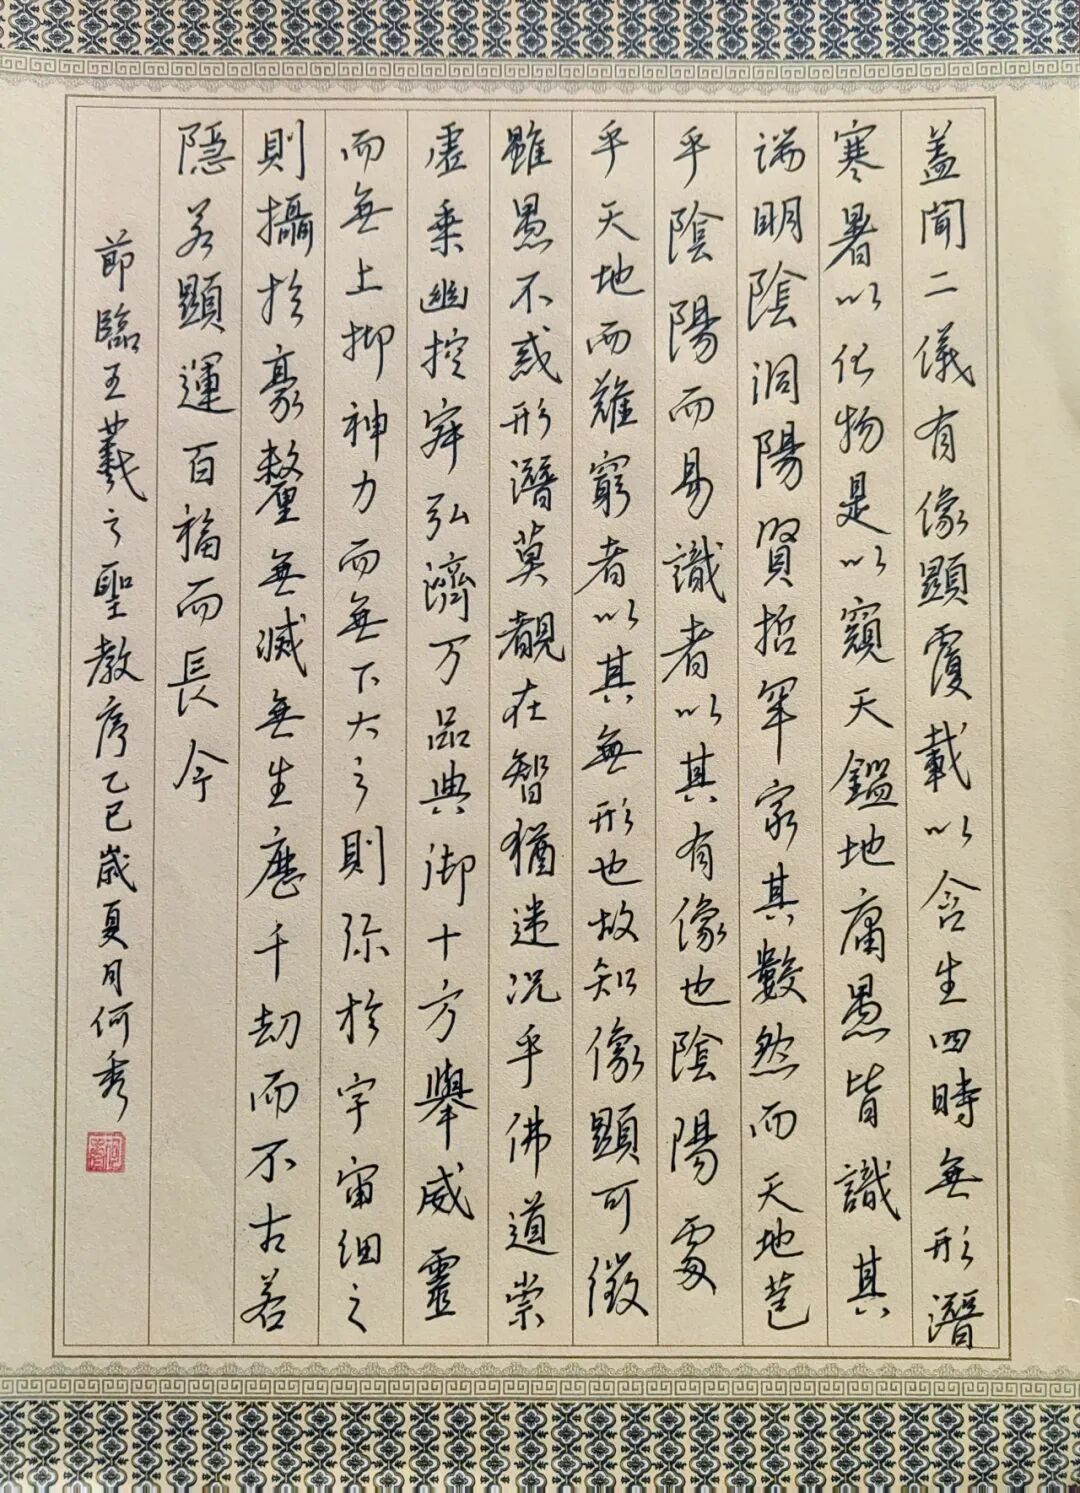 蓋聞二儀有像顯覆載以含生四時無形潛
寒暑以化物是以窺天鑑地庸愚皆識其
端明陰洞陽賢哲罕窮其數然而天地苞
乎陰陽而易識者以其有像也陰陽處
乎天地而難窮者以其無形也故知像顯可徵
雖愚不惑形潛莫覩在智猶迷況乎佛道崇
虛乘幽控寂弘濟万品典御十方舉威靈
而無上抑神力而無下大之則弥於宇宙細之
則攝於豪釐無滅無生歷千劫而不古若
隱若顯運百福而長今
節臨王羲之聖教序乙巳歲夏月何秀